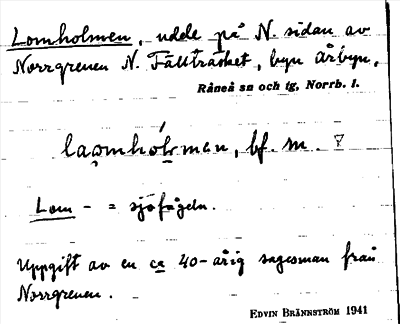 Lomholmen, udde på N. sidan av
Norrgrenen N. Fällträsket, byn Årbyn,
Råneå sn och tg, Norrb. l.
laomhólmen, bf. m.
Lom - = sjöfågeln.
Uppgift av en ca 40-årig sagesman från
Norrgrenen.
EDVIN BRÄNNSTRÖM 1941